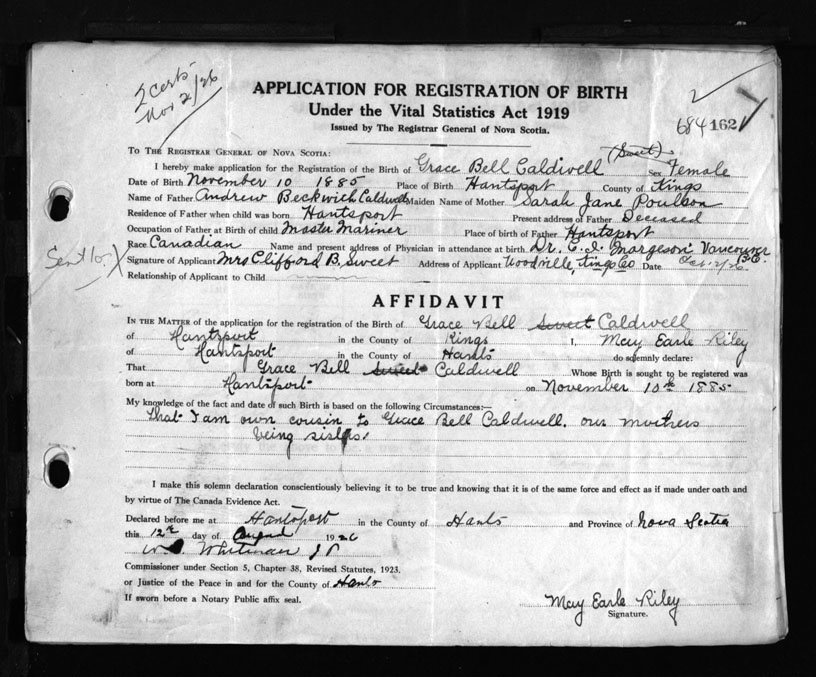 2 certs
Nov 2/26
APPLICATION FOR REGISTRATION OF BIRTH
Under the Vital Statistics Act 1919
Issued by The Registrar General of Nova Scotia.
684 162
TO THE REGISTRAR GENERAL OF NOVA SCOTIA:
(Sweet)
I hereby make application for the Registration of the Birth of Grace Bell Caldwell Sex Female
Date of Birth November 10 1885 Place of Birth Hantsport County of Kings
Name of Father Andrew Beckwich Caldwell Maiden Name of Mother Sarah Jane Poulson
Residence of Father when child was born Hantsport Present address of Father Deceased
Occupation of Father at Birth of child Master Mariner Place of birth of Father Hantsport
Race Canadian Name and present address of Physician in attendance at birth Dr. C. I. Margeson Vancouver B.C.
Signature of Applicant Mrs Clifford B. Sweet Address of Applicant Woodville, Kings Co Date Oct 12/26
Relationship of Applicant to Child
AFFIDAVIT
IN THE MATTER of the application for the registration of the Birth of Grace Bell Sweet Caldwell
of Hantsport in the County of Kings I, Mary Earle Riley
of Hantsport in the County of Hants do solemnly declare:
That Grace Bell Sweet Caldwell Whose Birth is sought to be registered was
born at Hantsport on November 10th 1885
My knowledge of the fact and date of such Birth is based on the following Circumstances:—
that I am own cousin to Grace Bell Caldwell. our mothers
being sisters.
I make this solemn declaration conscientiously believing it to be true and knowing that it is of the same force and effect as if made under oath and
by virtue of The Canada Evidence Act.
Declared before me at Hantsport in the County of Hants and Province of Nova Scotia
this 12th day of August 1926
Whitman J P
Commissioner under Section 5, Chapter 38, Revised Statutes, 1923.
or Justice of the Peace in and for the County of Hants
If sworn before a Notary Public affix seal.
May Earle Riley
Signature.